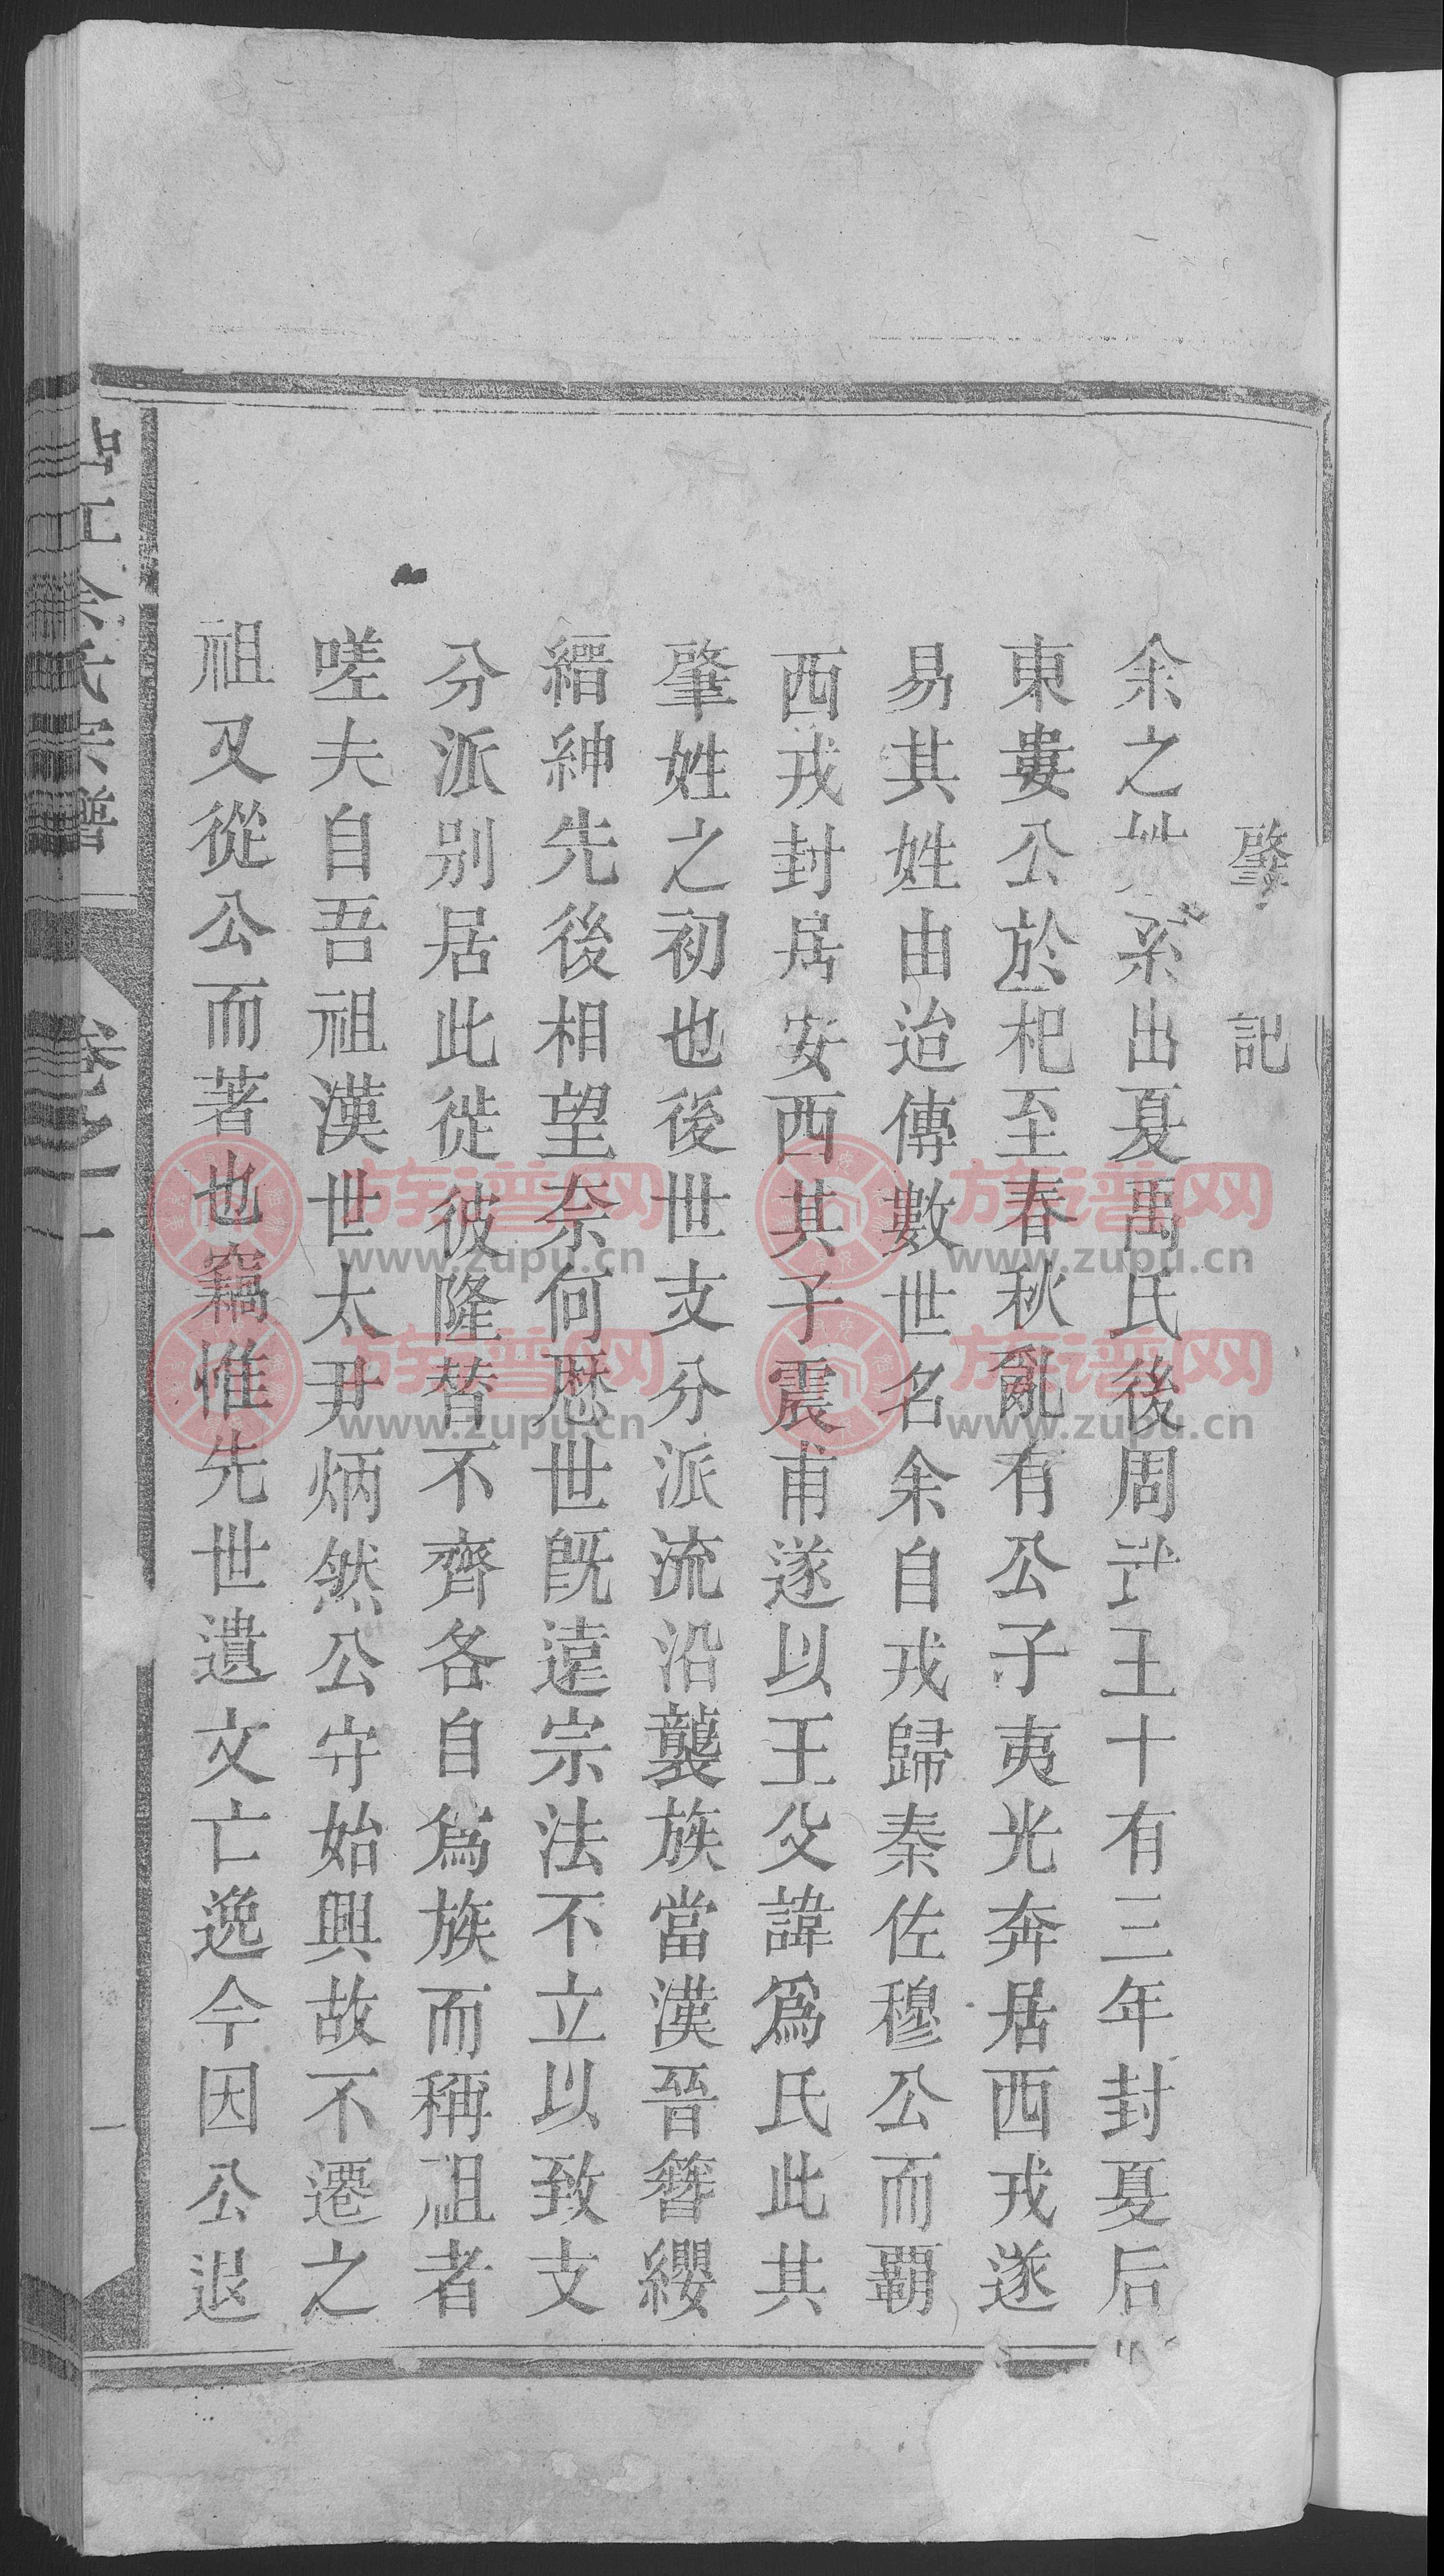 肇記
余之姓系出夏禹氏後周武王十有三年封夏后
東婁公於杞至春秋亂有公子夷光奔居西戎遂
易其姓由迨傳數世名余自戎歸秦佐穆公而覇
西戎封居安西其子震甫遂以王父諱爲氏此其
肇姓之初也後世支分派流沿襲族當漢晉簪纓
縉紳先後相望奈何歷世旣遠宗法不立以致支
分派别居此徙彼隆替不齊各自爲族而稱祖者
嗟夫自吾祖漢世太尹炳然公守始興故不遷之
祖又從公而著也竊惟先世遺文亡逸今因公退
余氏宗譜 卷之一 一
族谱网
www.zupu.cn
族谱网
www.zupu.cn
族谱网
www.zupu.cn
族谱网
www.zupu.cn